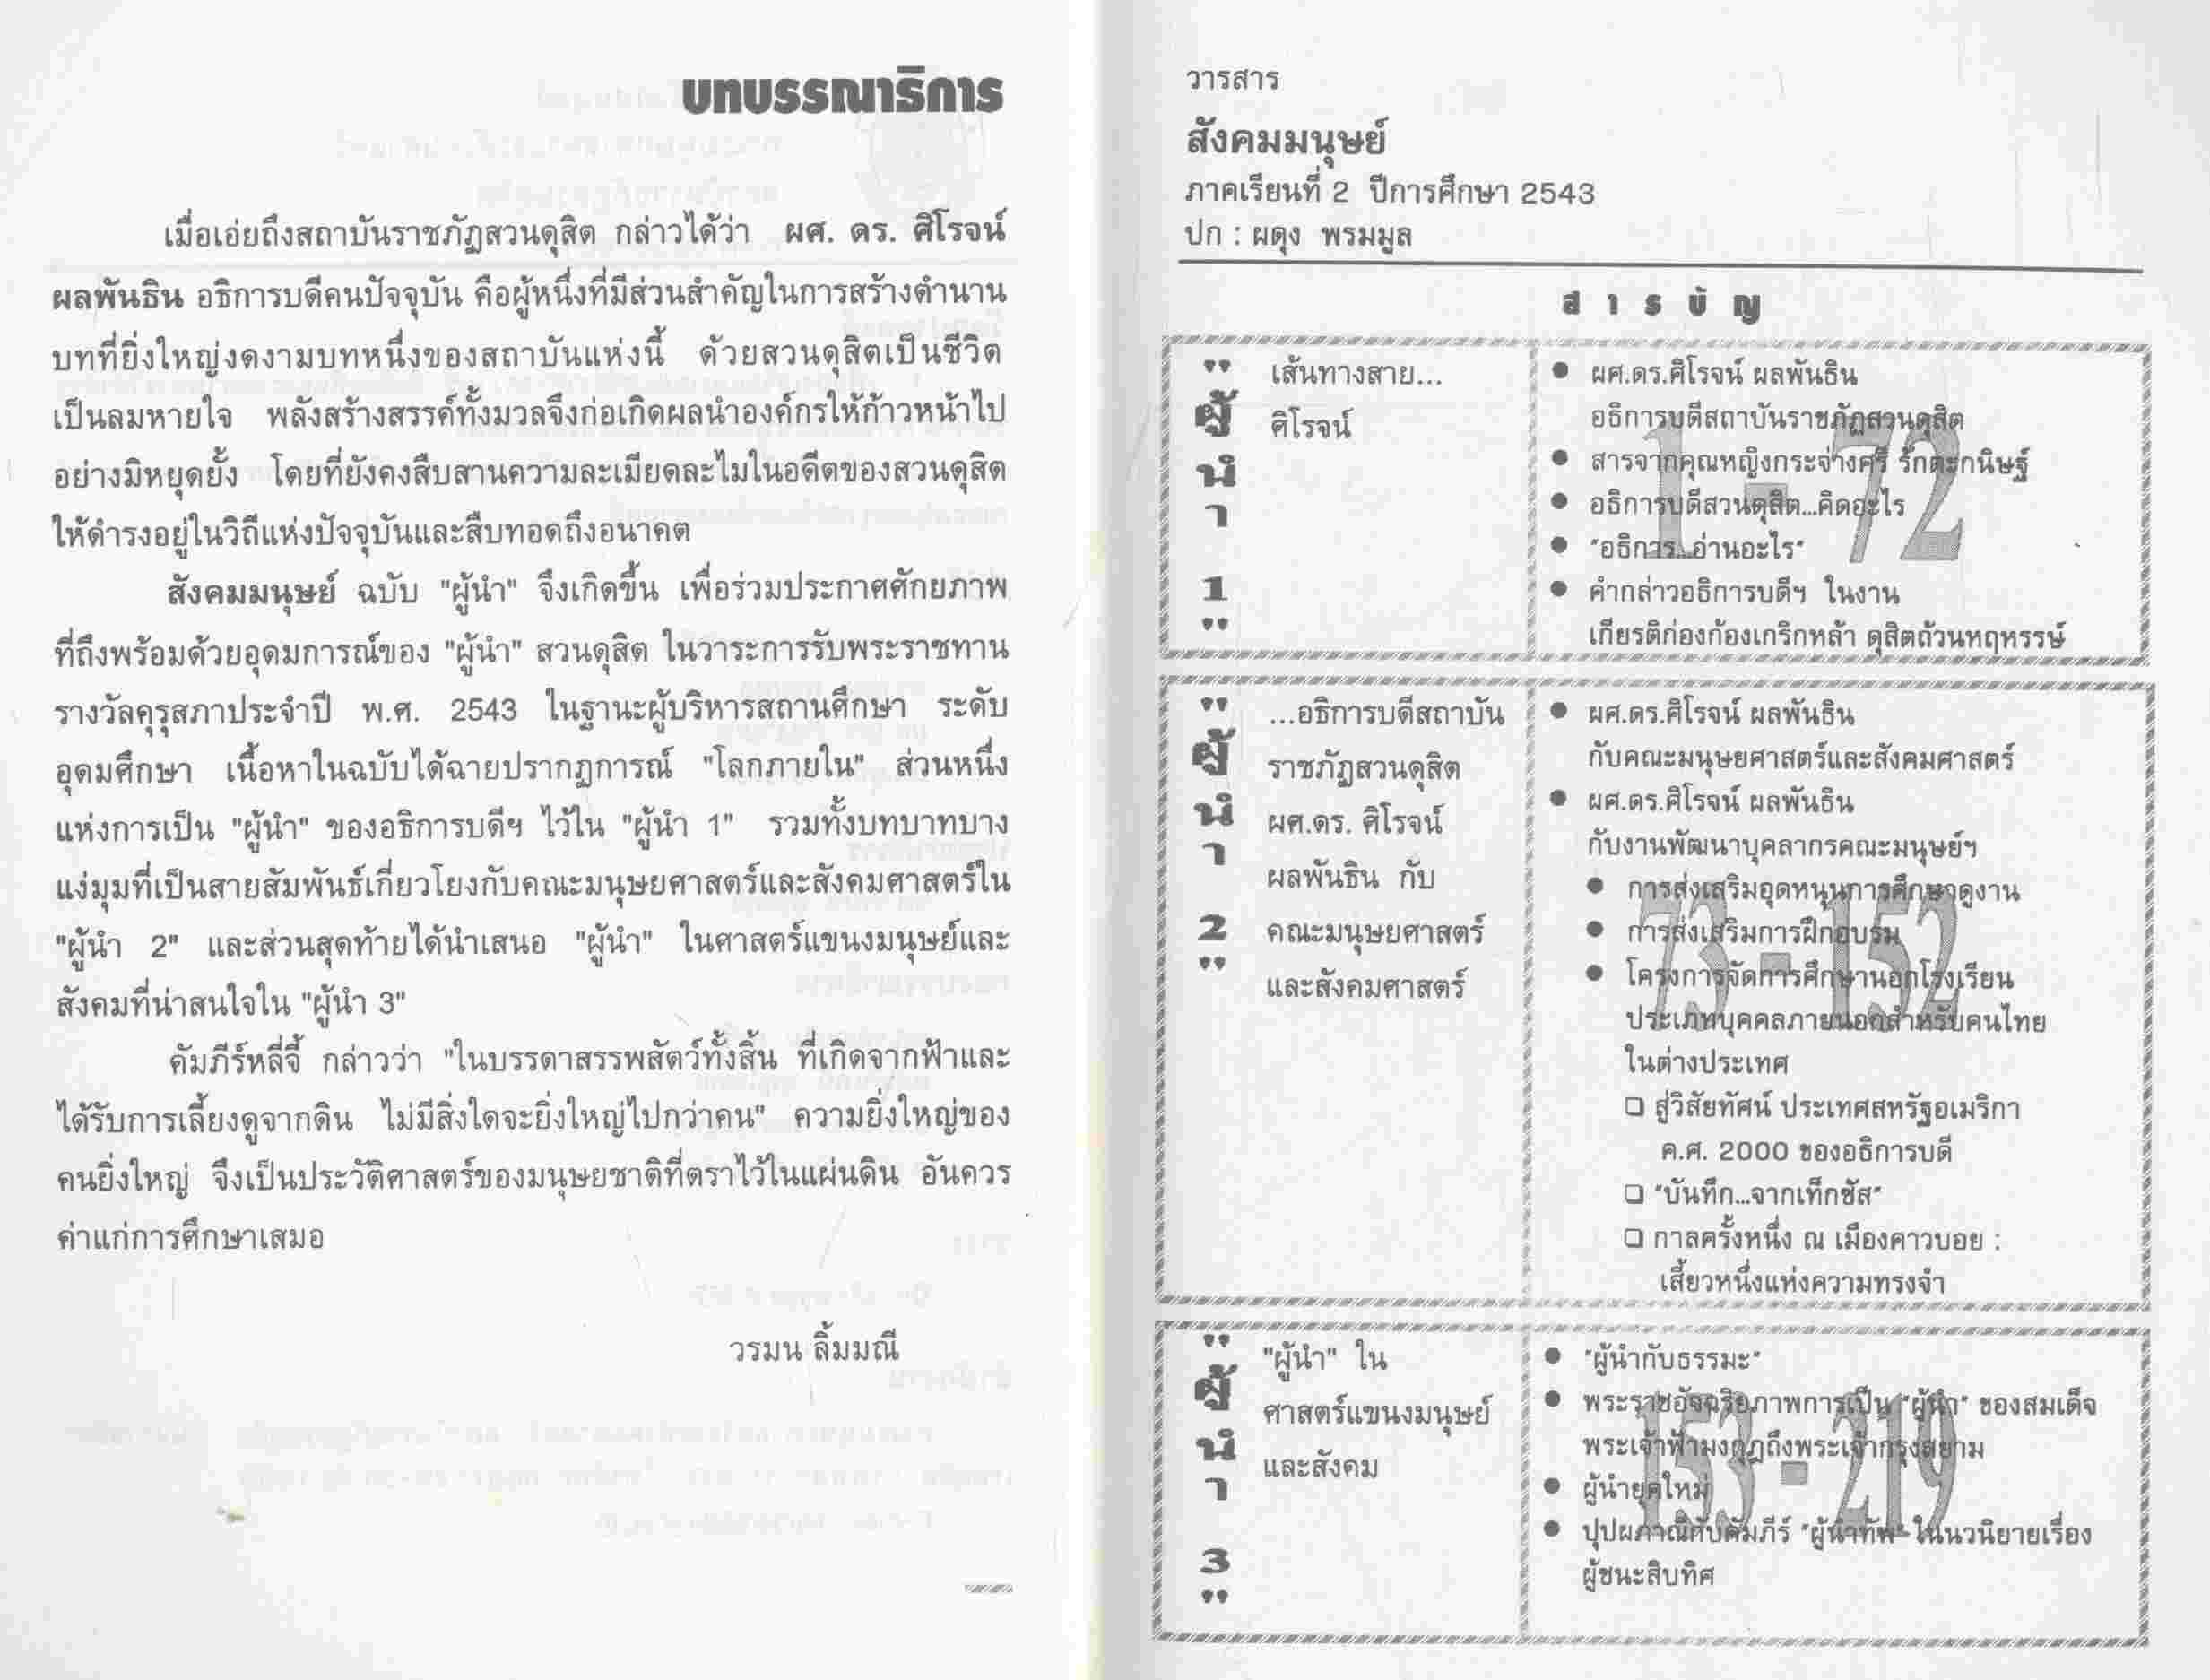 บทบรรณาธิการ
เมื่อเอ่ยถึงสถาบันราชภัฏสวนดุสิต กล่าวได้ว่า ผศ. ดร. ศิโรจน์
ผลพันธิน อธิการบดีคนปัจจุบัน คือผู้หนึ่งที่มีส่วนสำคัญในการสร้างตำนาน
บทที่ยิ่งใหญ่งดงามบทหนึ่งของสถาบันแห่งนี้ ด้วยสวนดุสิตเป็นชีวิต
เป็นลมหายใจ พลังสร้างสรรค์ทั้งมวลจึงก่อเกิดผลนำองค์กรให้ก้าวหน้าไป
อย่างมิหยุดยั้ง โดยที่ยังคงสืบสานความละเมียดละไมในอดีตของสวนดุสิต
ให้ดำรงอยู่ในวิถีแห่งปัจจุบันและสืบทอดถึงอนาคต
สังคมมนุษย์ ฉบับ "ผู้นำ" จึงเกิดขึ้น เพื่อร่วมประกาศศักยภาพ
ที่ถึงพร้อมด้วยอุดมการณ์ของ "ผู้นำ" สวนดุสิต ในวาระการรับพระราชทาน
รางวัลคุรุสภาประจำปี พ.ศ. 2543 ในฐานะผู้บริหารสถานศึกษา ระดับ
อุดมศึกษา เนื้อหาในฉบับได้ฉายปรากฏการณ์ "โลกภายใน" ส่วนหนึ่ง
แห่งการเป็น "ผู้นำ" ของอธิการบดีฯ ไว้ใน "ผู้นำ 1" รวมทั้งบทบาทบาง
แง่มุมที่เป็นสายสัมพันธ์เกี่ยวโยงกับคณะมนุษยศาสตร์และสังคมศาสตร์ใน
"ผู้นำ 2" และส่วนสุดท้ายได้นำเสนอ "ผู้นำ" ในศาสตร์แขนงมนุษย์และ
สังคมที่น่าสนใจใน "ผู้นำ 3"
คัมภีร์หลี่จี้ กล่าวว่า "ในบรรดาสรรพสัตว์ทั้งสิ้น ที่เกิดจากฟ้าและ
ได้รับการเลี้ยงดูจากดิน ไม่มีสิ่งใดจะยิ่งใหญ่ไปกว่าคน" ความยิ่งใหญ่ของ
คนยิ่งใหญ่ จึงเป็นประวัติศาสตร์ของมนุษยชาติที่ตราไว้ในแผ่นดิน อันควร
ค่าแก่การศึกษาเสมอ
วรมน ลิ้มมณี
วารสาร
สังคมมนุษย์
ภาคเรียนที่ 2 ปีการศึกษา 2543
ปก : ผดุง พรมมูล
สารบัญ
"ผู้นำ 1"
เส้นทางสาย...
ศิโรจน์
1 - 72
● ผศ.ดร.ศิโรจน์ ผลพันธิน
อธิการบดีสถาบันราชภัฏสวนดุสิต
● สารจากคุณหญิงกระจ่างศรี รักตะกนิษฐ์
● อธิการบดีสวนดุสิต...คิดอะไร
● "อธิการ...อ่านอะไร"
● คำกล่าวอธิการบดีฯ ในงาน
เกียรติก่องก้องเกริกหล้า ดุสิตถ้วนหฤหรรษ์
"ผู้นำ 2"
...อธิการบดีสถาบัน
ราชภัฏสวนดุสิต
ผศ.ดร. ศิโรจน์
ผลพันธิน กับ
คณะมนุษยศาสตร์
และสังคมศาสตร์
73 - 152
● ผศ.ดร.ศิโรจน์ ผลพันธิน
กับคณะมนุษยศาสตร์และสังคมศาสตร์
● ผศ.ดร.ศิโรจน์ ผลพันธิน
กับงานพัฒนาบุคลากรคณะมนุษย์ฯ
● การส่งเสริมอุดหนุนการศึกษาดูงาน
● การส่งเสริมการฝึกอบรม
● โครงการจัดการศึกษานอกโรงเรียน
ประเภทบุคคลภายนอกสำหรับคนไทย
ในต่างประเทศ
❑ สู่วิสัยทัศน์ ประเทศสหรัฐอเมริกา
ค.ศ. 2000 ของอธิการบดี
❑ "บันทึก...จากเท็กซัส"
❑ กาลครั้งหนึ่ง ณ เมืองคาวบอย :
เสี้ยวหนึ่งแห่งความทรงจำ
"ผู้นำ 3"
"ผู้นำ" ใน
ศาสตร์แขนงมนุษย์
และสังคม
153 - 219
● "ผู้นำกับธรรมะ"
● พระราชอัจฉริยภาพการเป็น "ผู้นำ" ของสมเด็จ
พระเจ้าฟ้ามงกุฎถึงพระเจ้ากรุงสยาม
● ผู้นำยุคใหม่
● ปุปผภาณีกับคัมภีร์ "ผู้นำทัพ" ในนวนิยายเรื่อง
ผู้ชนะสิบทิศ